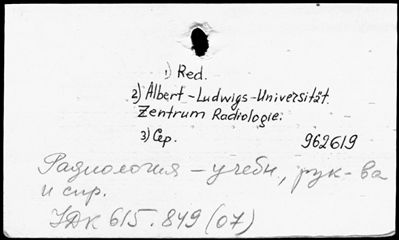 1) Red.
2) Albert-Ludwigs-Universität.
Zentrum Radiologie.
3) Сер. 962619
Радиология - учебн, рук-ва
и спр.
УДК 615.849 (07)